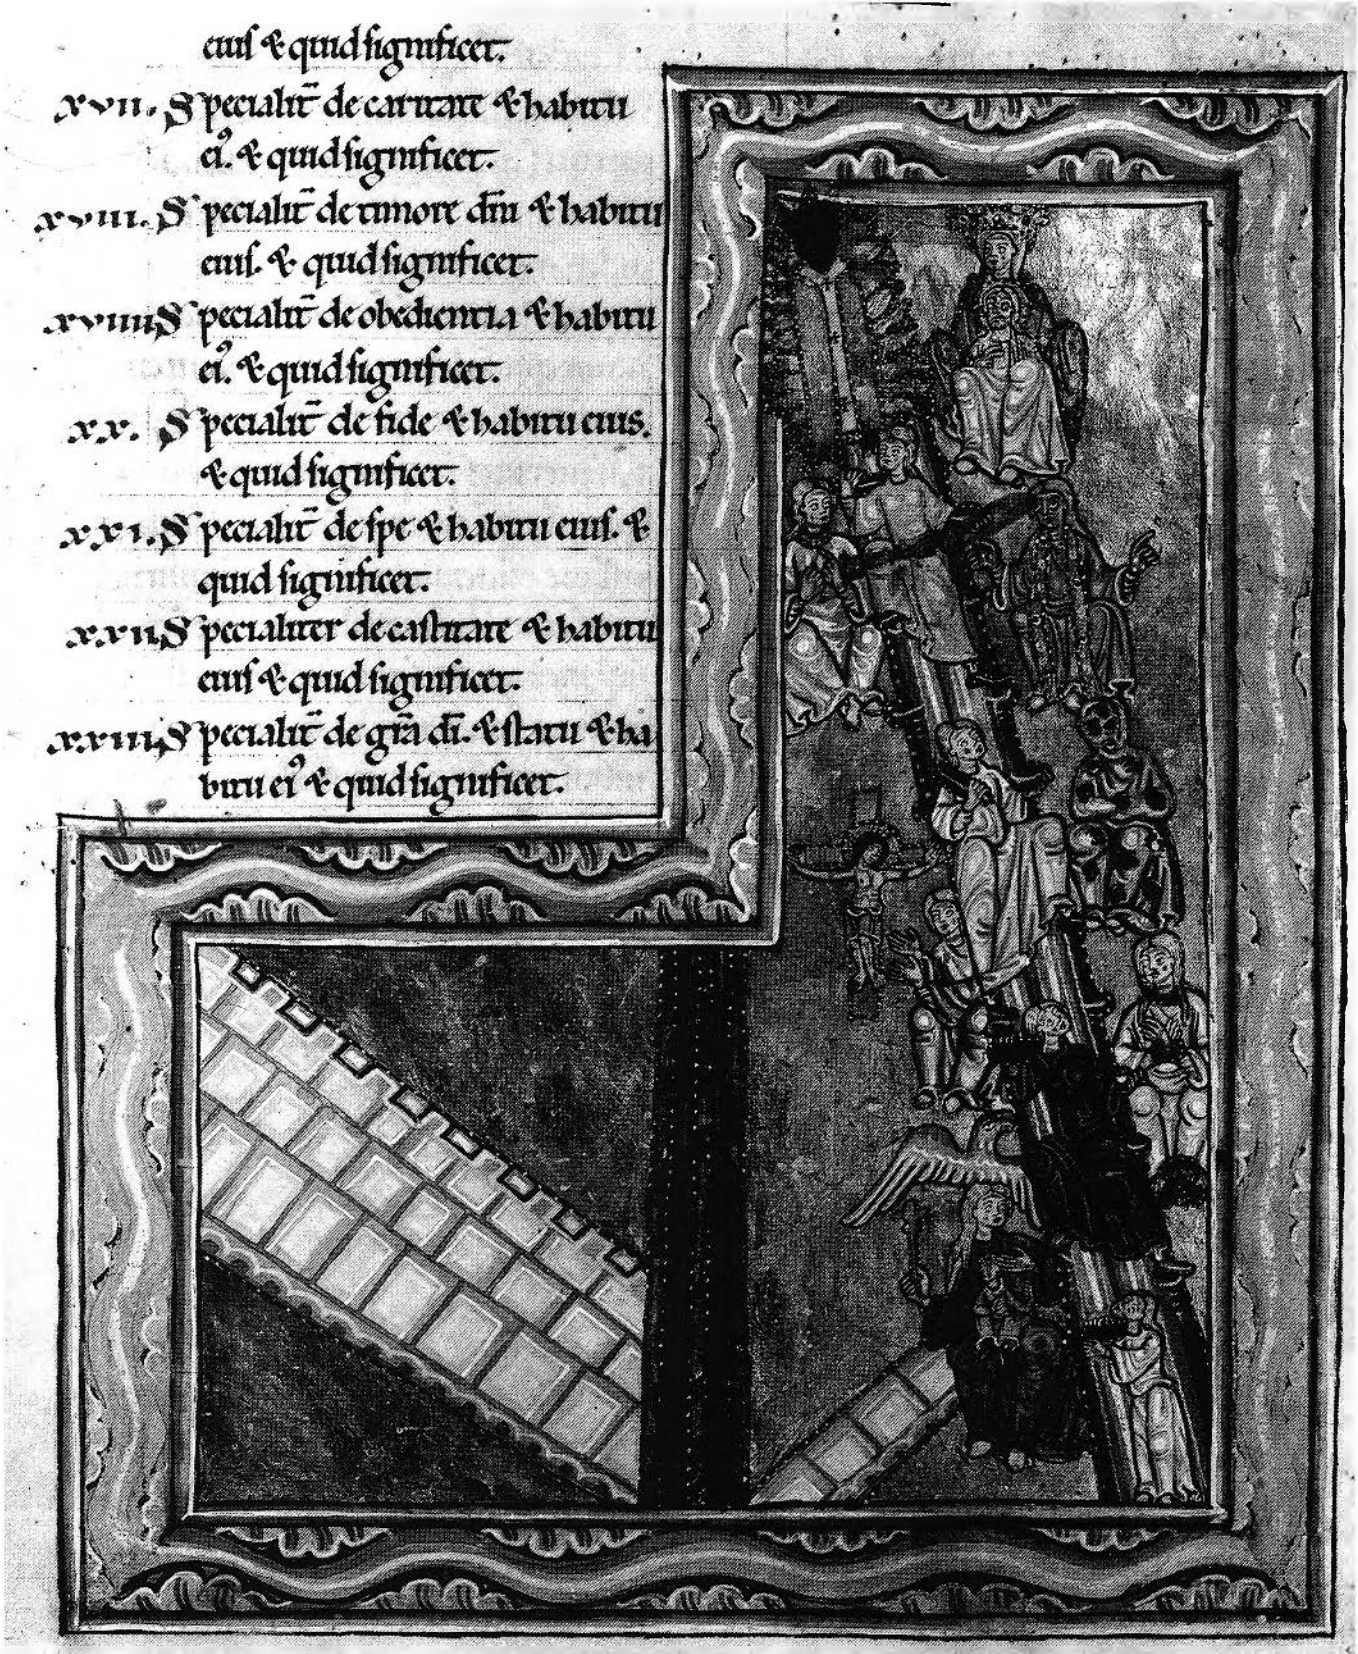 eius & quid significet.
xvii. Specialit̄ de caritate & habitu
ei⁹. & quid significet.
xviii. Specialit̄ de timore dn̄i & habitu
eius. & quid significet.
xviiii Specialit̄ de obedientia & habitu
ei⁹. & quid significet.
xx. Specialit̄ de fide & habitu eius.
& quid significet.
xxi. Specialit̄ de spe & habitu eius. &
quid significet.
xxii Specialiter de castitate & habitu
eius & quid significet.
xxiii. Specialit̄ de gr̄a dī. & statu & ha
bitu ei⁹ & quid significet.